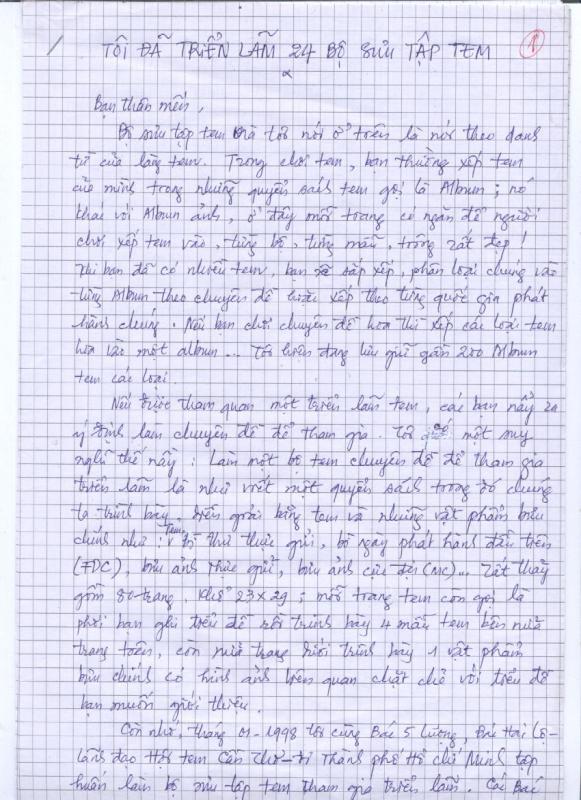 TÔI ĐÃ TRIỂN LÃM 24 BỘ SƯU TẬP TEM
1
Bạn thân mến,
Bộ sưu tập tem mà tôi nói ở trên là nói theo danh
từ của làng tem. Trong chơi tem, bạn thường xếp tem
của mình trong những quyển sách tem gọi là Album; nó
khác với Album ảnh, ở đây mỗi trang có ngăn để người
chơi xếp tem vào, từng bộ, từng mẫu, trông rất đẹp!
Khi bạn đã có nhiều tem, bạn sẽ sắp xếp, phân loại chúng vào
từng Album theo chuyên đề hoặc xếp theo từng quốc gia phát
hành chúng. Nếu bạn chơi chuyên đề hoa thì xếp các loại tem
hoa vào một album... Tôi hiện đang lưu giữ gần 200 Album
tem các loại.
Nếu được tham quan một triển lãm tem, các bạn nảy ra
ý định làm chuyên đề để tham gia. Tôi có một suy
nghĩ thế này: Làm một bộ tem chuyên đề để tham gia
triển lãm là như viết một quyển sách trong đó chúng
ta trình bày, diễn giải bằng tem và những vật phẩm bưu
chính như: Tem, bì thư thực gửi, bì ngày phát hành đầu tiên
(FDC), bưu ảnh thực gửi, bưu ảnh cực đại (MC)... Tất thảy
gồm 80 trang, khổ 23x29; mỗi trang tem còn gọi là
phơi bạn ghi tiêu đề rồi trình bày 4 mẫu tem bên nửa
trang trên, còn nửa trang dưới trình bày 1 vật phẩm
bưu chính có hình ảnh liên quan chặt chẽ với tiêu đề
bạn muốn giới thiệu.
Còn nhớ, tháng 01-1998 tôi cùng Bác 5 Lương, Bác Hai Lộ-
lãnh đạo Hội tem Cần Thơ-đi Thành phố Hồ Chí Minh tập
huấn làm bộ sưu tập tem tham gia triển lãm. Các Bác